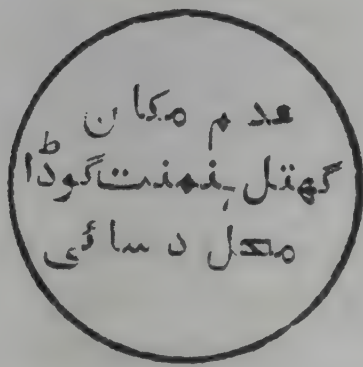 عدم مکان
گهتل ہنمنت گوڈا
محل دسائی